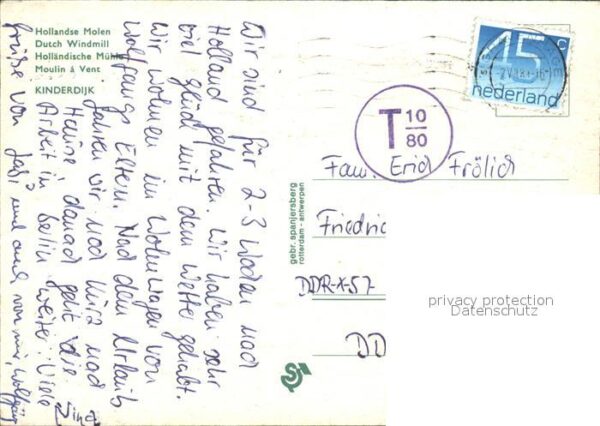 Hollandse Molen
Dutch Windmill
Holländische Mühle
Moulin à Vent
KINDERDIJK
Wir sind für 2-3 Wochen nach
Holland gefahren. Wir haben sehr
viel Glück mit dem Wetter gehabt.
Wir wohnen im Wohnwagen von
Wolfgangs Eltern. Nach dem Urlaub
fahren wir noch kurz nach
Hause danach geht die
Arbeit in Berlin weiter. Viele
Grüße von und auch von mir, Wolfgang
45 c
nederland
T 10
80
Fam. Erich Frölich
Friedric
DDR-X-57
DD
gebr. spanjersberg
rotterdam - antwerpen
privacy protection
Datenschutz